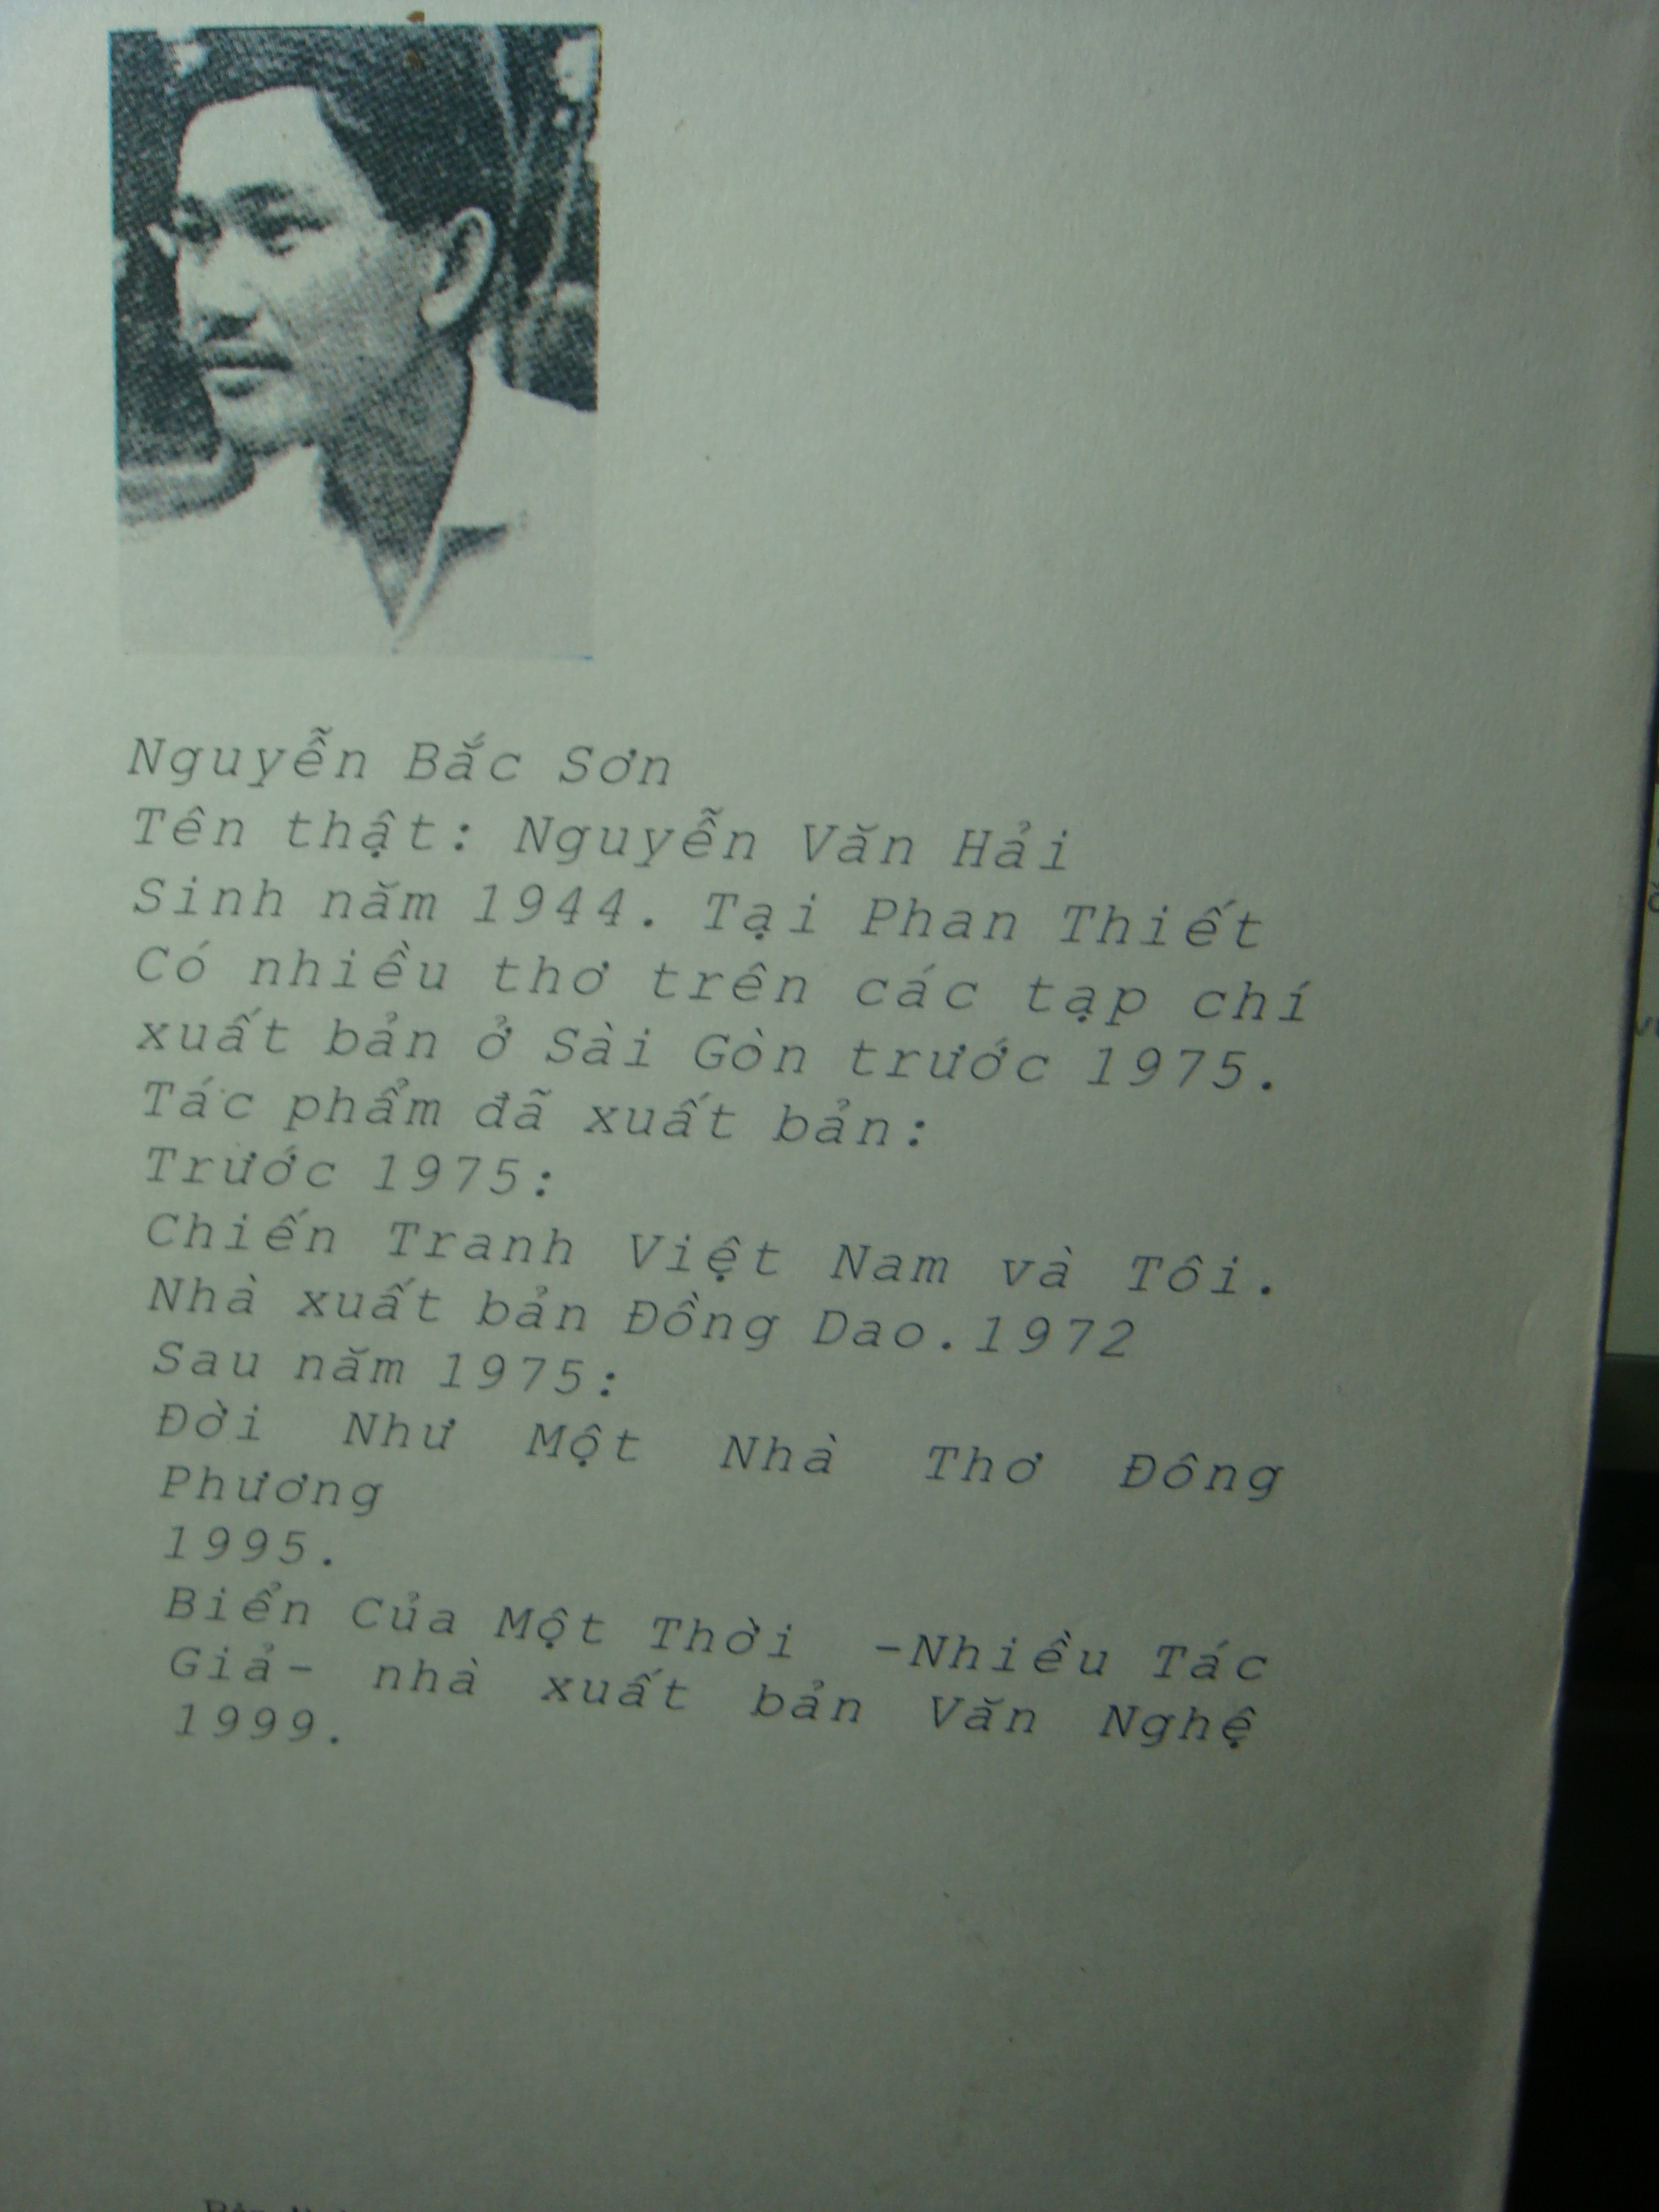 Nguyễn Bắc Sơn
Tên thật: Nguyễn Văn Hải
Sinh năm 1944. Tại Phan Thiết
Có nhiều thơ trên các tạp chí
xuất bản ở Sài Gòn trước 1975.
Tác phẩm đã xuất bản:
Trước 1975:
Chiến Tranh Việt Nam và Tôi.
Nhà xuất bản Đồng Dao.1972
Sau năm 1975:
Đời Như Một Nhà Thơ Đông
Phương
1995.
Biển Của Một Thời -Nhiều Tác
Giả- nhà xuất bản Văn Nghệ
1999.